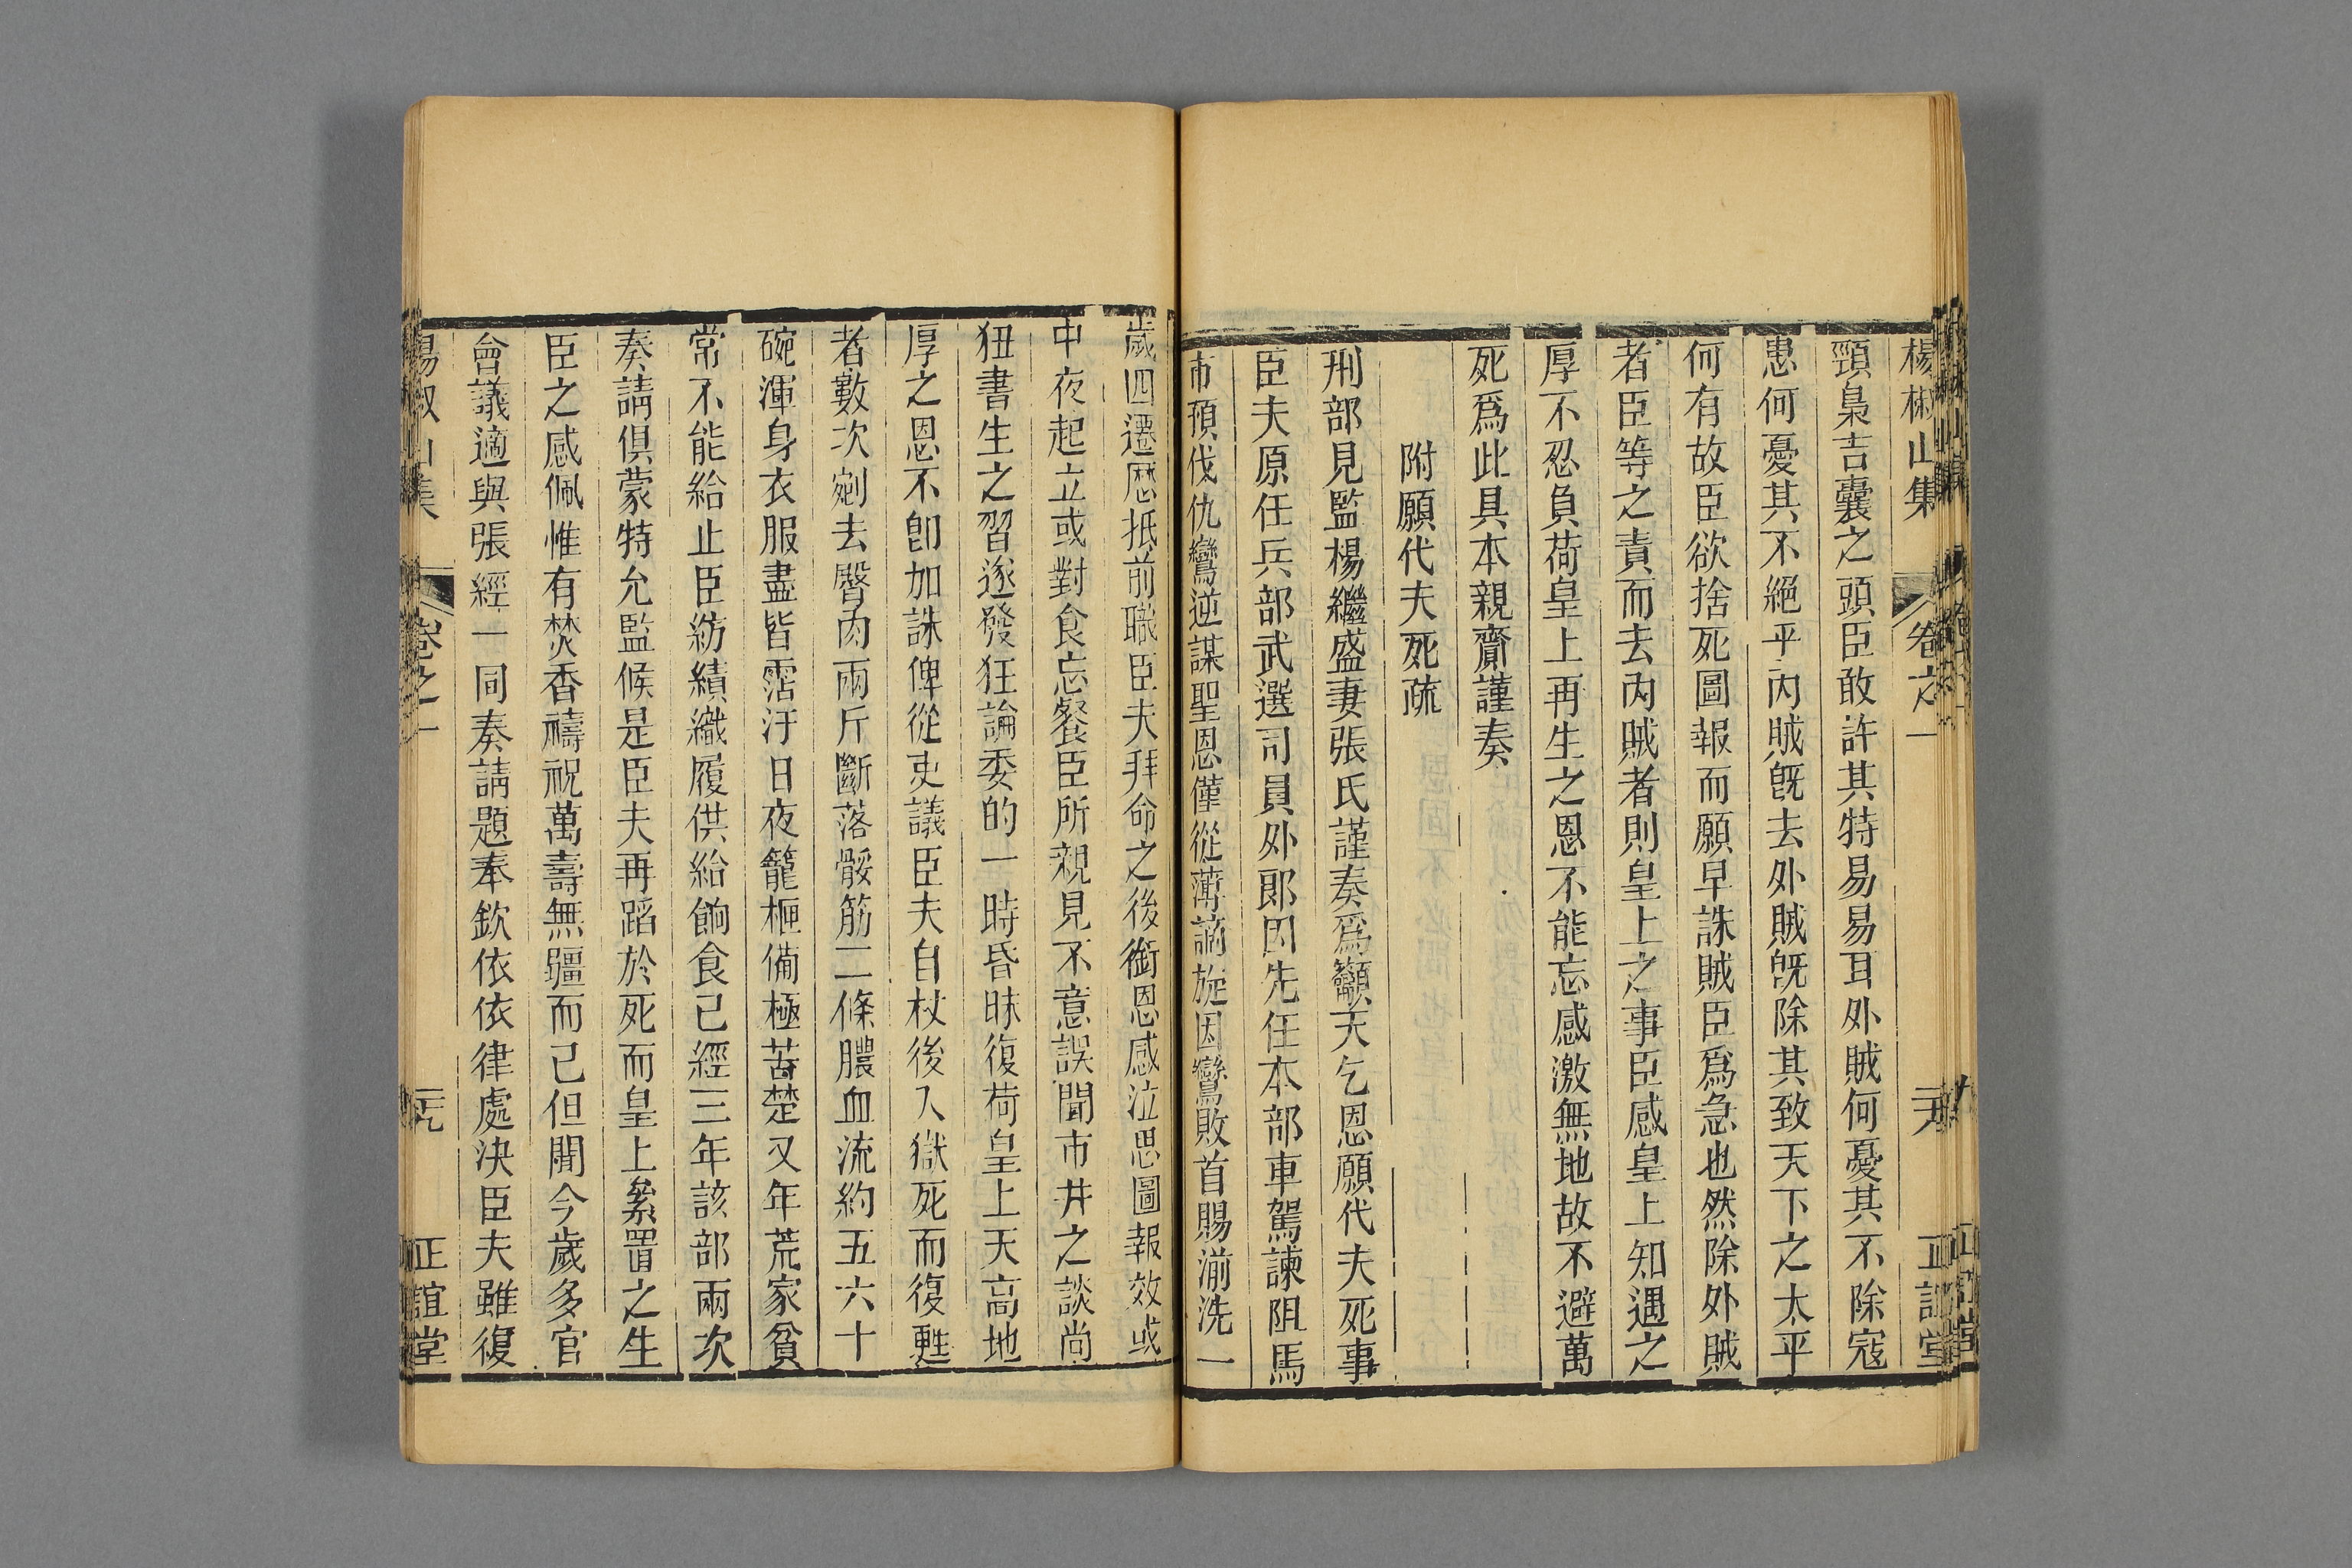 楊椒山集 卷之一 正誼堂
頸梟吉囊之頭臣敢許其特易易耳外賊何憂其不除寇
患何憂其不絕乎內賊旣去外賊旣除其致天下之太平
何有故臣欲捨死圖報而願早誅賊臣爲急也然除外賊
者臣等之責而去內賊者則皇上之事臣感皇上知遇之
厚不忍負荷皇上再生之恩不能忘感激無地故不避萬
死爲此具本親齎謹奏
附願代夫死疏
刑部見監楊繼盛妻張氏謹奏爲籲天乞恩願代夫死事
臣夫原任兵部武選司員外郎因先任本部車駕諫阻馬
市預伐仇鸞逆謀聖恩僅從薄謫旋因鸞敗首賜湔洗一
歲四遷歷抵前職臣夫拜命之後銜恩感泣思圖報效或
中夜起立或對食忘餐臣所親見不意誤聞市井之談尚
狃書生之習遂發狂論委的一時昏昧復荷皇上天高地
厚之恩不卽加誅俾從吏議臣夫自杖後入獄死而復甦
者數次剜去臀肉兩斤斷落骽筋二條膿血流約五六十
碗渾身衣服盡皆霑汙日夜籠柙備極苦楚又年荒家貧
常不能給止臣紡績織履供給餉食已經三年該部兩次
奏請俱蒙特允監候是臣夫再蹈於死而皇上累置之生
臣之感佩惟有焚香禱祝萬壽無疆而已但聞今歲多官
會議適與張經一同奏請題奉欽依依律處決臣夫雖復
楊椒山集 卷之一 正誼堂